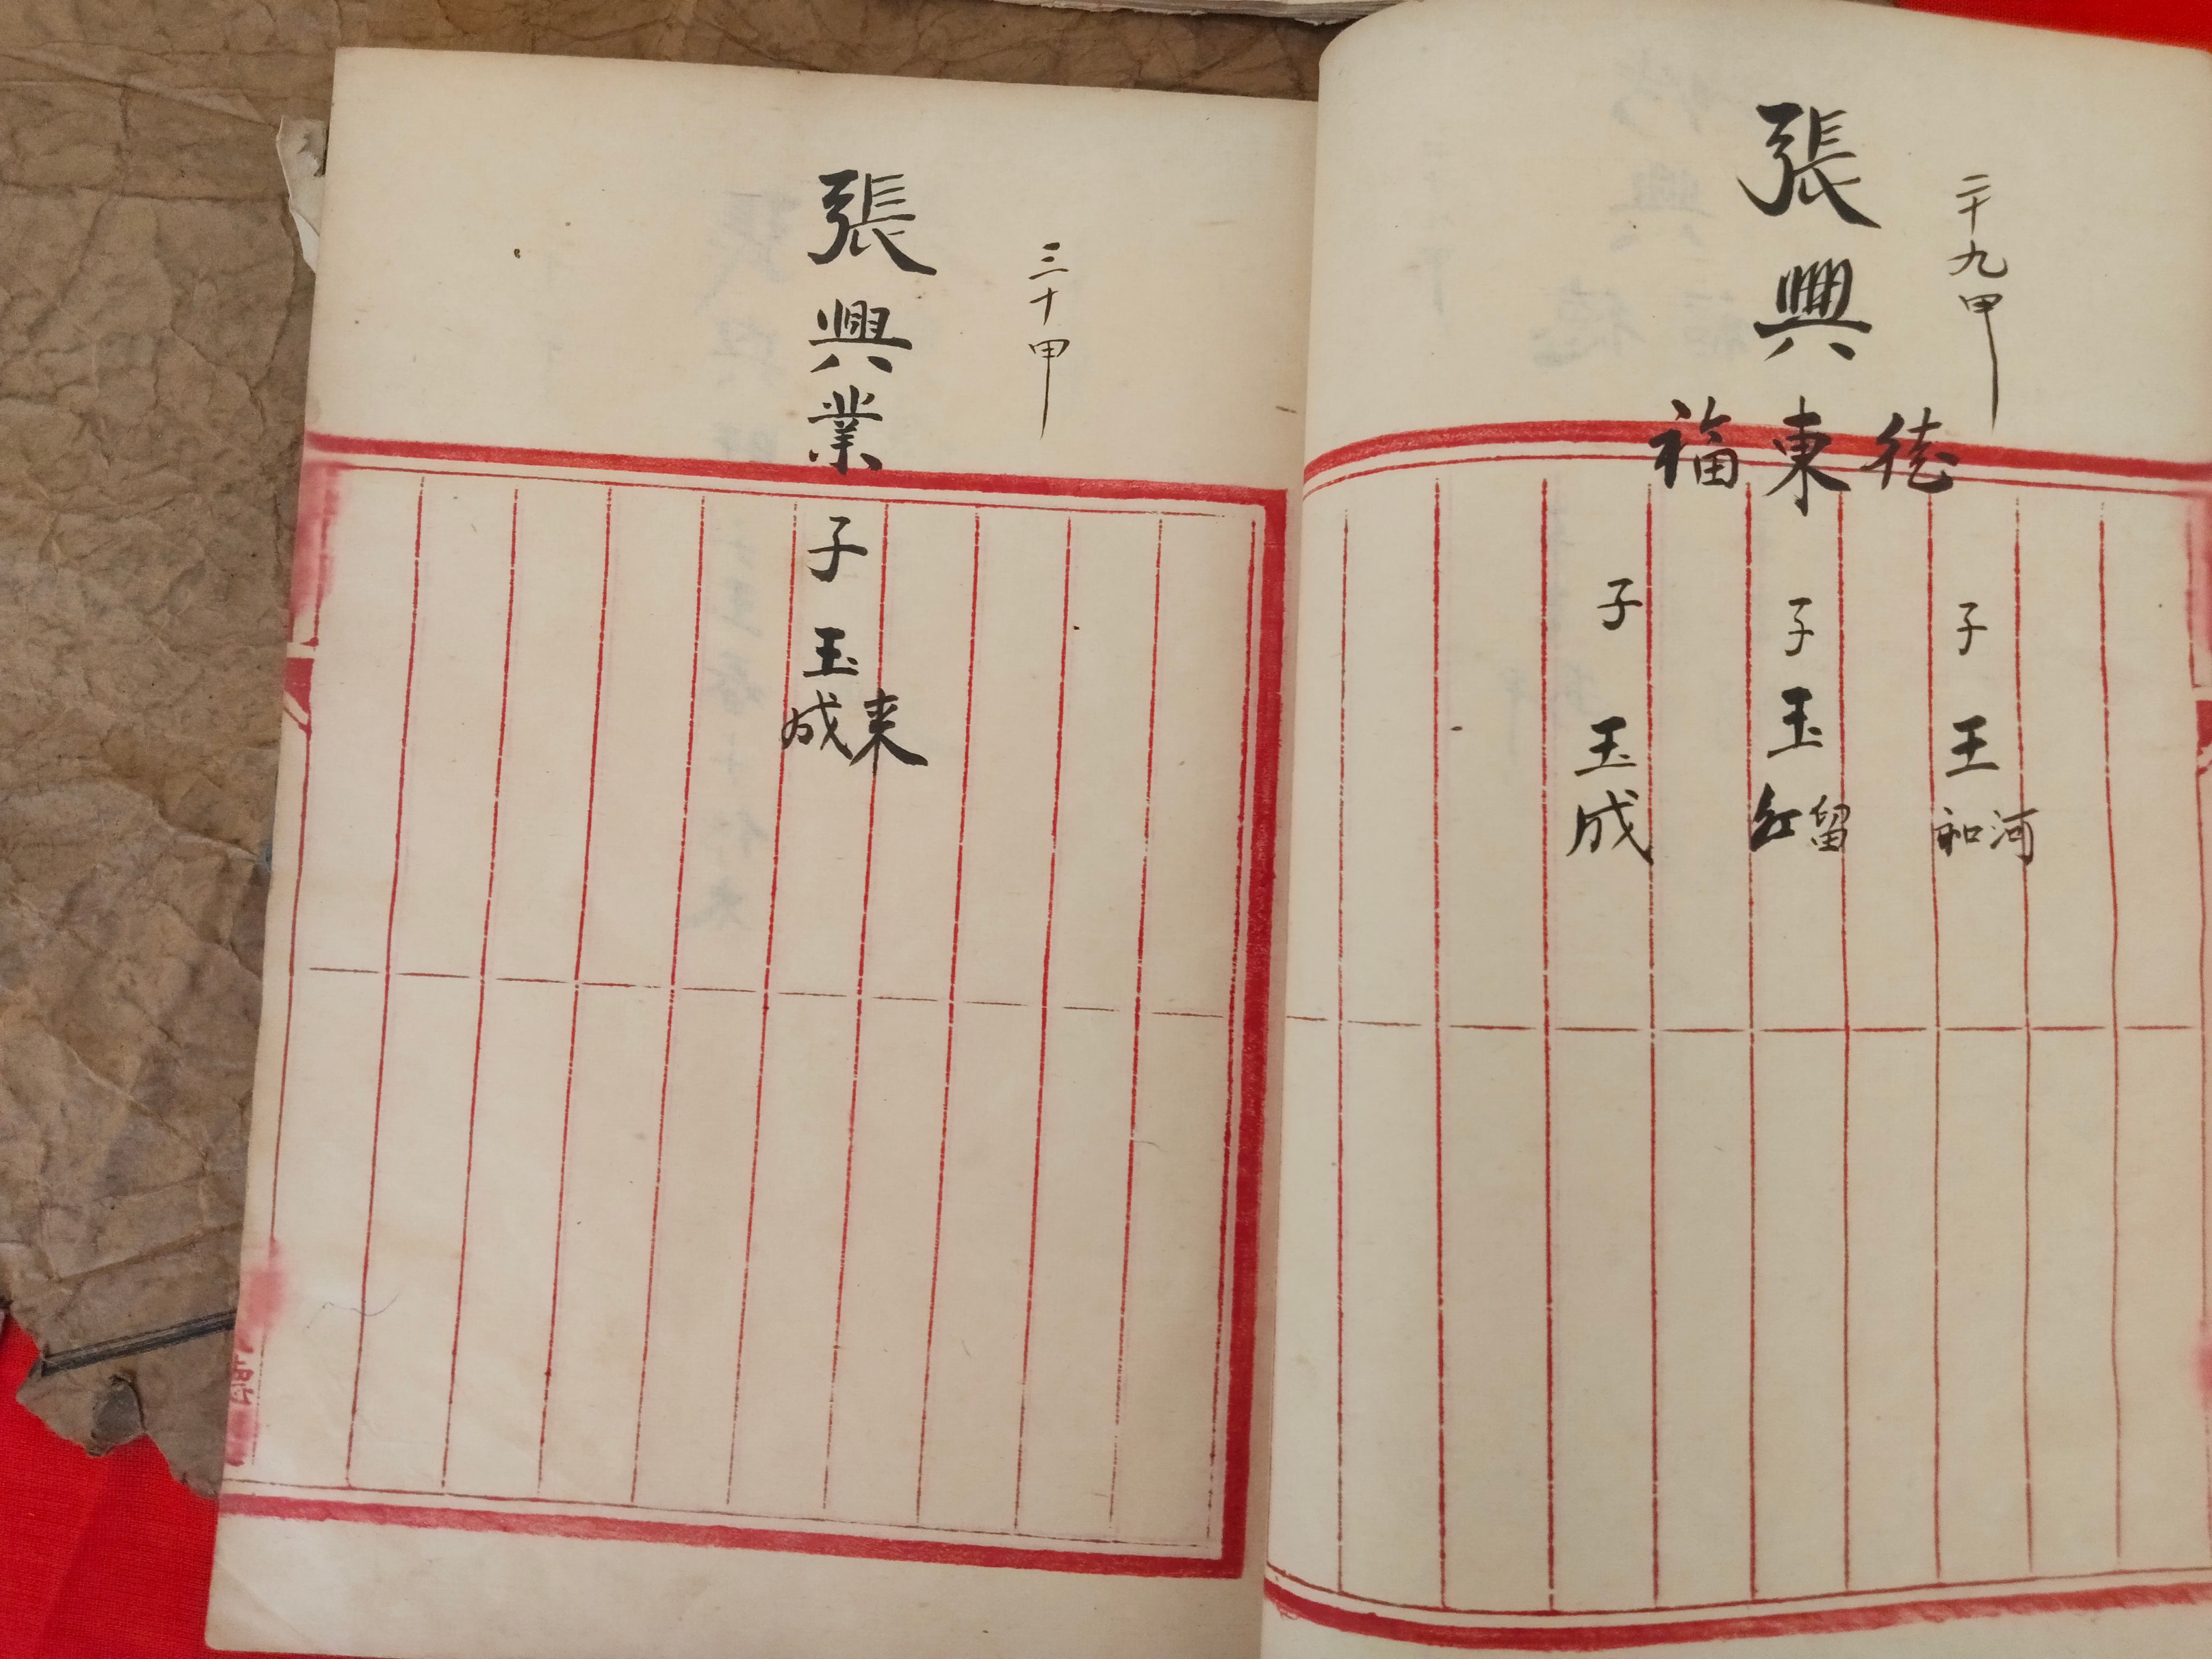 二十九甲
張興
德東福
子王河和
子玉留紅
子玉成
三十甲
張興業
子玉来成